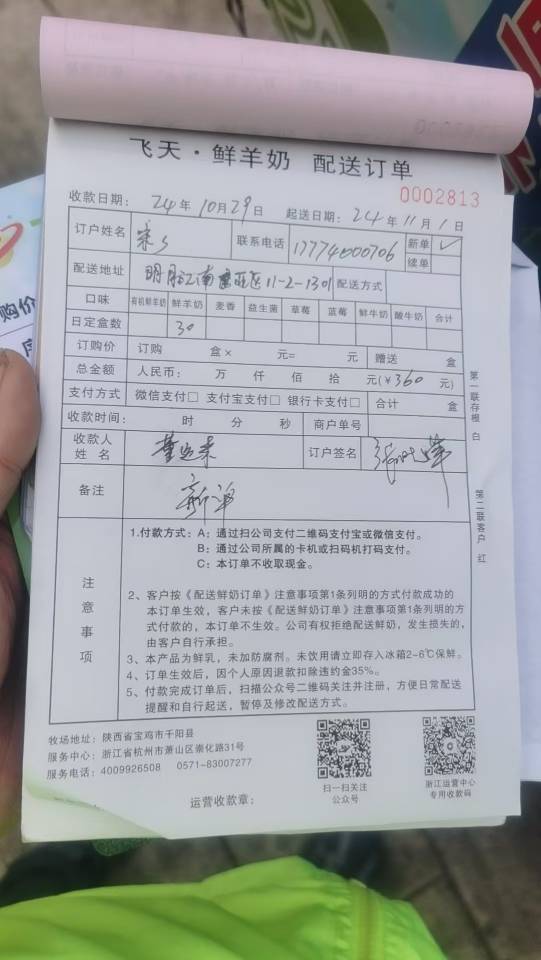 飞天·鲜羊奶 配送订单
0002813
收款日期： 24 年 10 月 29 日 起送日期： 24 年 11 月 1 日
订户姓名 联系电话 17774000706 新单 ✓
续单
配送地址 11-2-1301 配送方式
口味 有机鲜羊奶 鲜羊奶 麦香 益生菌 草莓 蓝莓 鲜牛奶 酸牛奶 合计
日定盒数 30
订购价 订购 盒× 元= 元 赠送 盒
总金额 人民币： 万 仟 佰 拾 元(￥360 元)
支付方式 微信支付□ 支付宝支付□ 银行卡支付□ 合计 盒
收款时间： 时 分 秒 商户单号
收款人
姓 名 订户签名
备注 新单
第一联存根 白
第二联客户 红
注意事项
1.付款方式：A：通过扫公司支付二维码支付宝或微信支付。
B：通过公司所属的卡机或扫码机打码支付。
C：本订单不收取现金。
2、客户按《配送鲜奶订单》注意事项第1条列明的方式付款成功的
本订单生效，客户未按《配送鲜奶订单》注意事项第1条列明的方
式付款的，本订单不生效。公司有权拒绝配送鲜奶，发生损失的，
由客户自行承担。
3、本产品为鲜乳，未加防腐剂。未饮用请立即存入冰箱2-6℃保鲜。
4、订单生效后，因个人原因退款扣除违约金35%。
5、付款完成订单后，扫描公众号二维码关注并注册，方便日常配送
提醒和自行起送，暂停及修改配送方式。
牧场地址：陕西省宝鸡市千阳县
服务中心：浙江省杭州市萧山区崇化路31号
服务电话：4009926508 0571-83007277
运营收款章：
扫一扫关注
公众号
浙江运营中心
专用收款码
购价